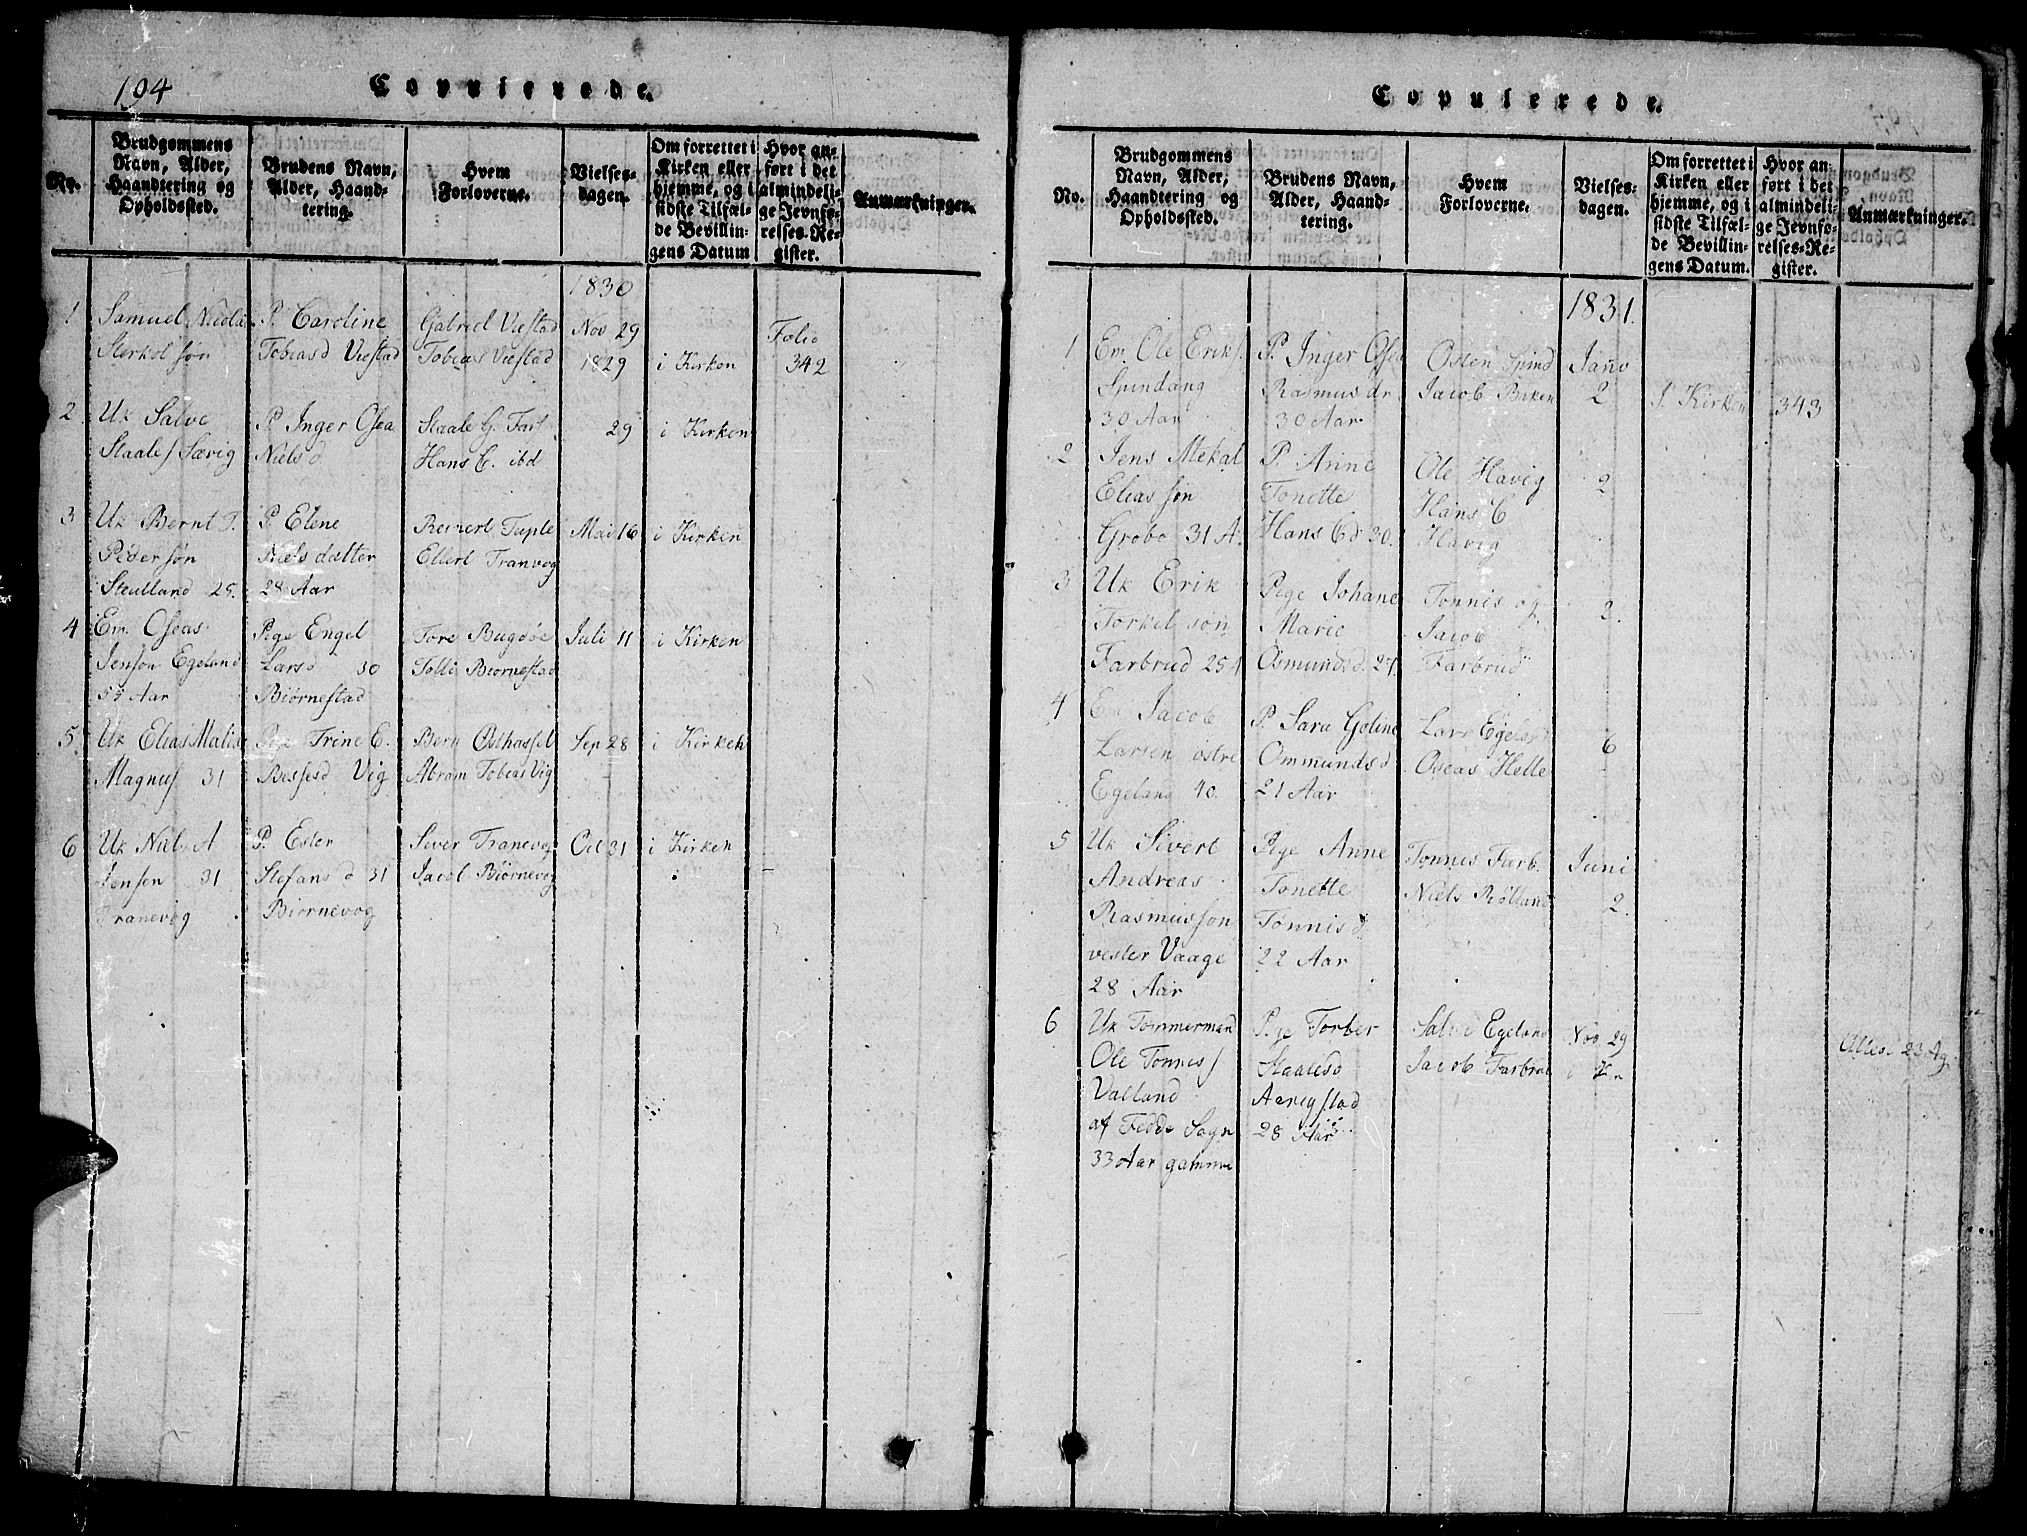 194
Copulerede.
No.
Brudgommens
Navn, Alder,
Haandtering og
Opholdssted.
Brudens Navn,
Alder, Haand-
tering.
Hvem
Forloverne.
Vielses-
dagen.
Om forrettet i
Kirken eller
hjemme, og i
sidste Tilfæl-
de Bevillin-
gens Datum
Hvor an-
ført i det
almindeli-
ge Jevnfø-
relses-Re-
gister.
Anmærkninger.
1830
1
Samuel Nicolai
Sterkel søn
P. Caroline
Tobiasd Viestad
Gabriel Viestad
Tobias Viestad
Nov 29
1829
i Kirken
Folio
342
2
Uk Salve
Staales Sævig
P Inger Osea
Niels d
Staale G.
Hans C. ibd
29
i Kirken
3
Uk Bernt
Pedersøn
25.
P. Elene
Niels datter
28 Aar
Reinert
Ellert Tranvog
Mai 16
i Kirken
4
Em. Oseas
Jensøn Egeland
55 Aar
Pige Engel
Larsd 30
Biørnestad
Tore Bugdøe
Tolli Biørnestad
Juli 11
i Kirken
5
Uk Elias
Magnus 31
Pige Trine E.
Vig
Bern
Abram Tobias Vig
Sep 28
i Kirken
6
Uk A
Jensen 31
Tranevog
P. Ester
Stefans d 31
Biørnevog
Siver Tranevog
Jacob Biørnevog
Oct 31
i Kirken
Copulerede.
No.
Brudgommens
Navn, Alder,
Haandtering og
Opholdssted.
Brudens Navn,
Alder, Haand-
tering.
Hvem
Forloverne.
Vielses-
dagen.
Om forrettet i
Kirken eller
hjemme, og i
sidste Tilfæl-
de Bevillin-
gens Datum.
Hvor an-
ført i det
almindeli-
ge Jevnfø-
relses-Re-
gister.
Anmærkninger.
1831.
1
Em. Ole Eriks.
Spindang
30 Aar
P. Inger Osea
Rasmus dr
30 Aar
Osten Spind
Jacob Birken
Janv
2
I Kirken
343
2
Jens Mekal
Elias søn
Grobo 31 A.
P. Anne
Tonette
Hans C d 30.
Ole Havig
Hans C
Havig
2
3
Uk Erik
Torkel søn
Farbrud 25 A
Pige Johane
Marie
Osmunds d. 27.
Tonnis og
Jacob
Farbrud
2.
4
Em Jacob
Larsen østre
Egeland 40.
P. Sara Goline
Ommunds d
21 Aar
Lars Egeland
Oseas Helle
6
5
Uk Sivert
Andreas
Rasmussøn
vester Vaage
28 Aar
Pige Anne
Tonette
Tonnis d
22 Aar
Tonnes Farb.
Niels Røiland
Juni
2.
6
Uk Tommermand
Ole Tonnes
Valland
af Fedde Sogn
33 Aar gamme
Pige Torber
Staalesd
28 Aar
Salve Egeland
Jacob Farbrud
Nov 29
23 Ag